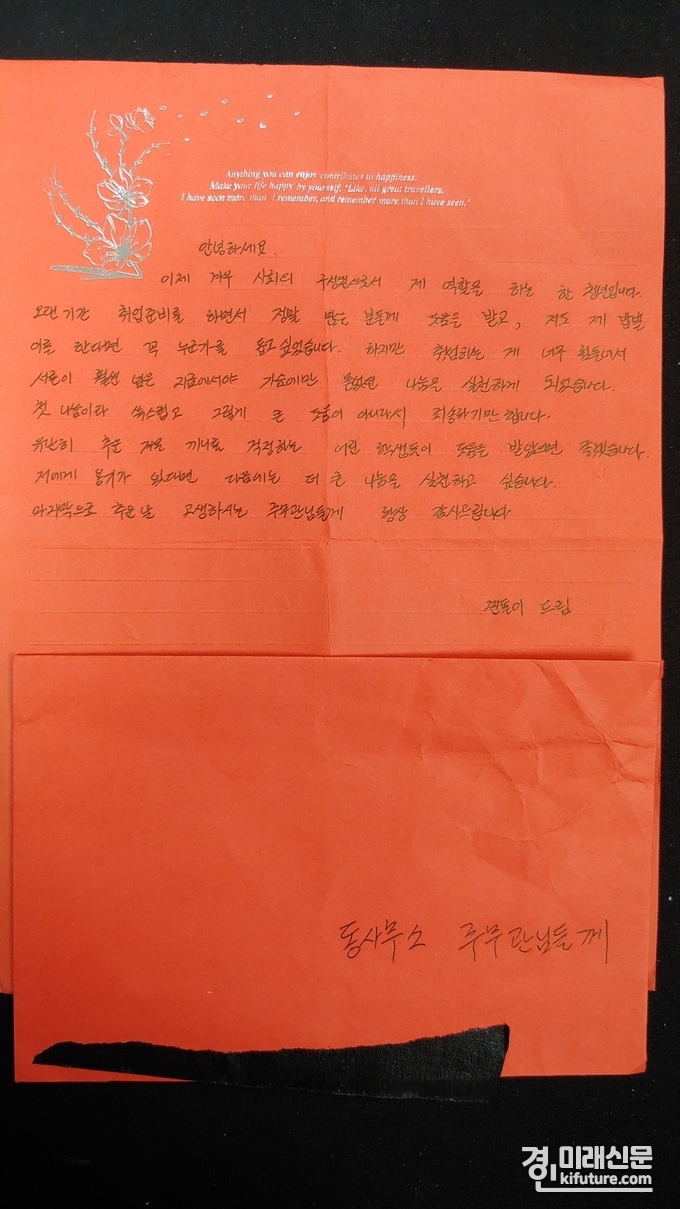 Anything you can enjoy contributes to happiness.
Make your life happy by yourself, "Like, all great travellers,
I have seen more than I remember, and remember more than I have seen."
안녕하세요.
이제 겨우 사회의 구성원으로서 제 역할을 하는 한 청년입니다.
오랜기간 취업준비를 하면서 정말 많은 분들께 도움을 받고, 저도 제 밥벌
이를 한다면 꼭 누군가를 돕고 싶었습니다. 하지만 취업하는 게 너무 힘들어서
서른이 훨씬 넘은 지금에서야 가슴에만 품었던 나눔을 실천하게 되었습니다.
첫 나눔이라 쑥스럽고 그렇게 큰 도움이 아니라서 죄송하기만 합니다.
유난히 추운 겨울 끼니를 걱정하는 어린 학생들이 도움을 받았으면 좋겠습니다.
저에게 용기가 있다면 다음에는 더 큰 나눔을 실천하고 싶습니다.
마지막으로 추운날 고생하시는 주무관님들께 항상 감사드립니다
드림
동사무소 주무관님들께
경인미래신문
kifuture.com